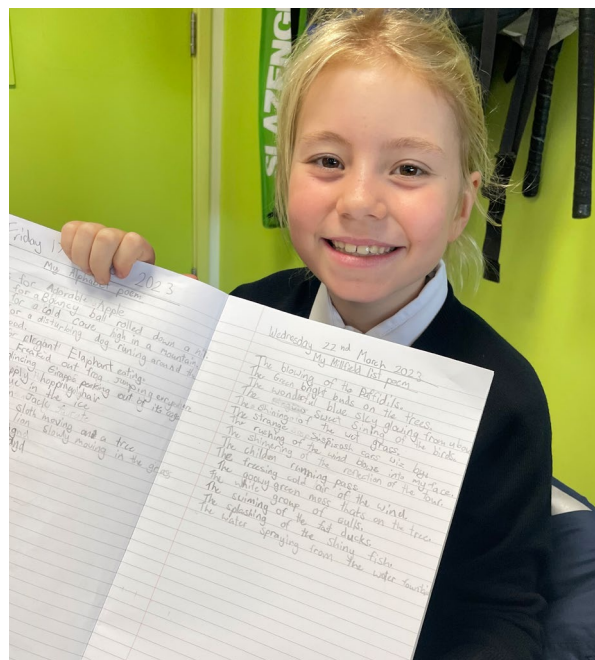 SLAZENG
Friday 17
2023
My Alphabet poem
for Adorable Apple
for a Bouncy ball rolled down a hill
for a cold cave, high in a mountain
for a distacting dog runing around
elegant Elaphant eating
Freaked out frog jumping everywhere
Grapes poking out of its
hopping hair
in the ice
Jack
cloth moving and a tree
lion slowly moving in the grass
Wednesday 22nd March 2023
My Millfield list poem
The blowing of the Daffidils.
The Green bright buds on the trees.
The wonderful blue sky glowing from above
The super sining of the birds
The shining of the wet grass.
The strange cars Die by.
The rushing of the wind blowe into my face.
The shimering of the reflection of the
The childen running pass
The freesing cold air of the wind.
The gooey green moss thats on the tree
The white group of gulls.
The swiming of the fat ducks.
The splashing of the shiny fish.
The water spraying from the water